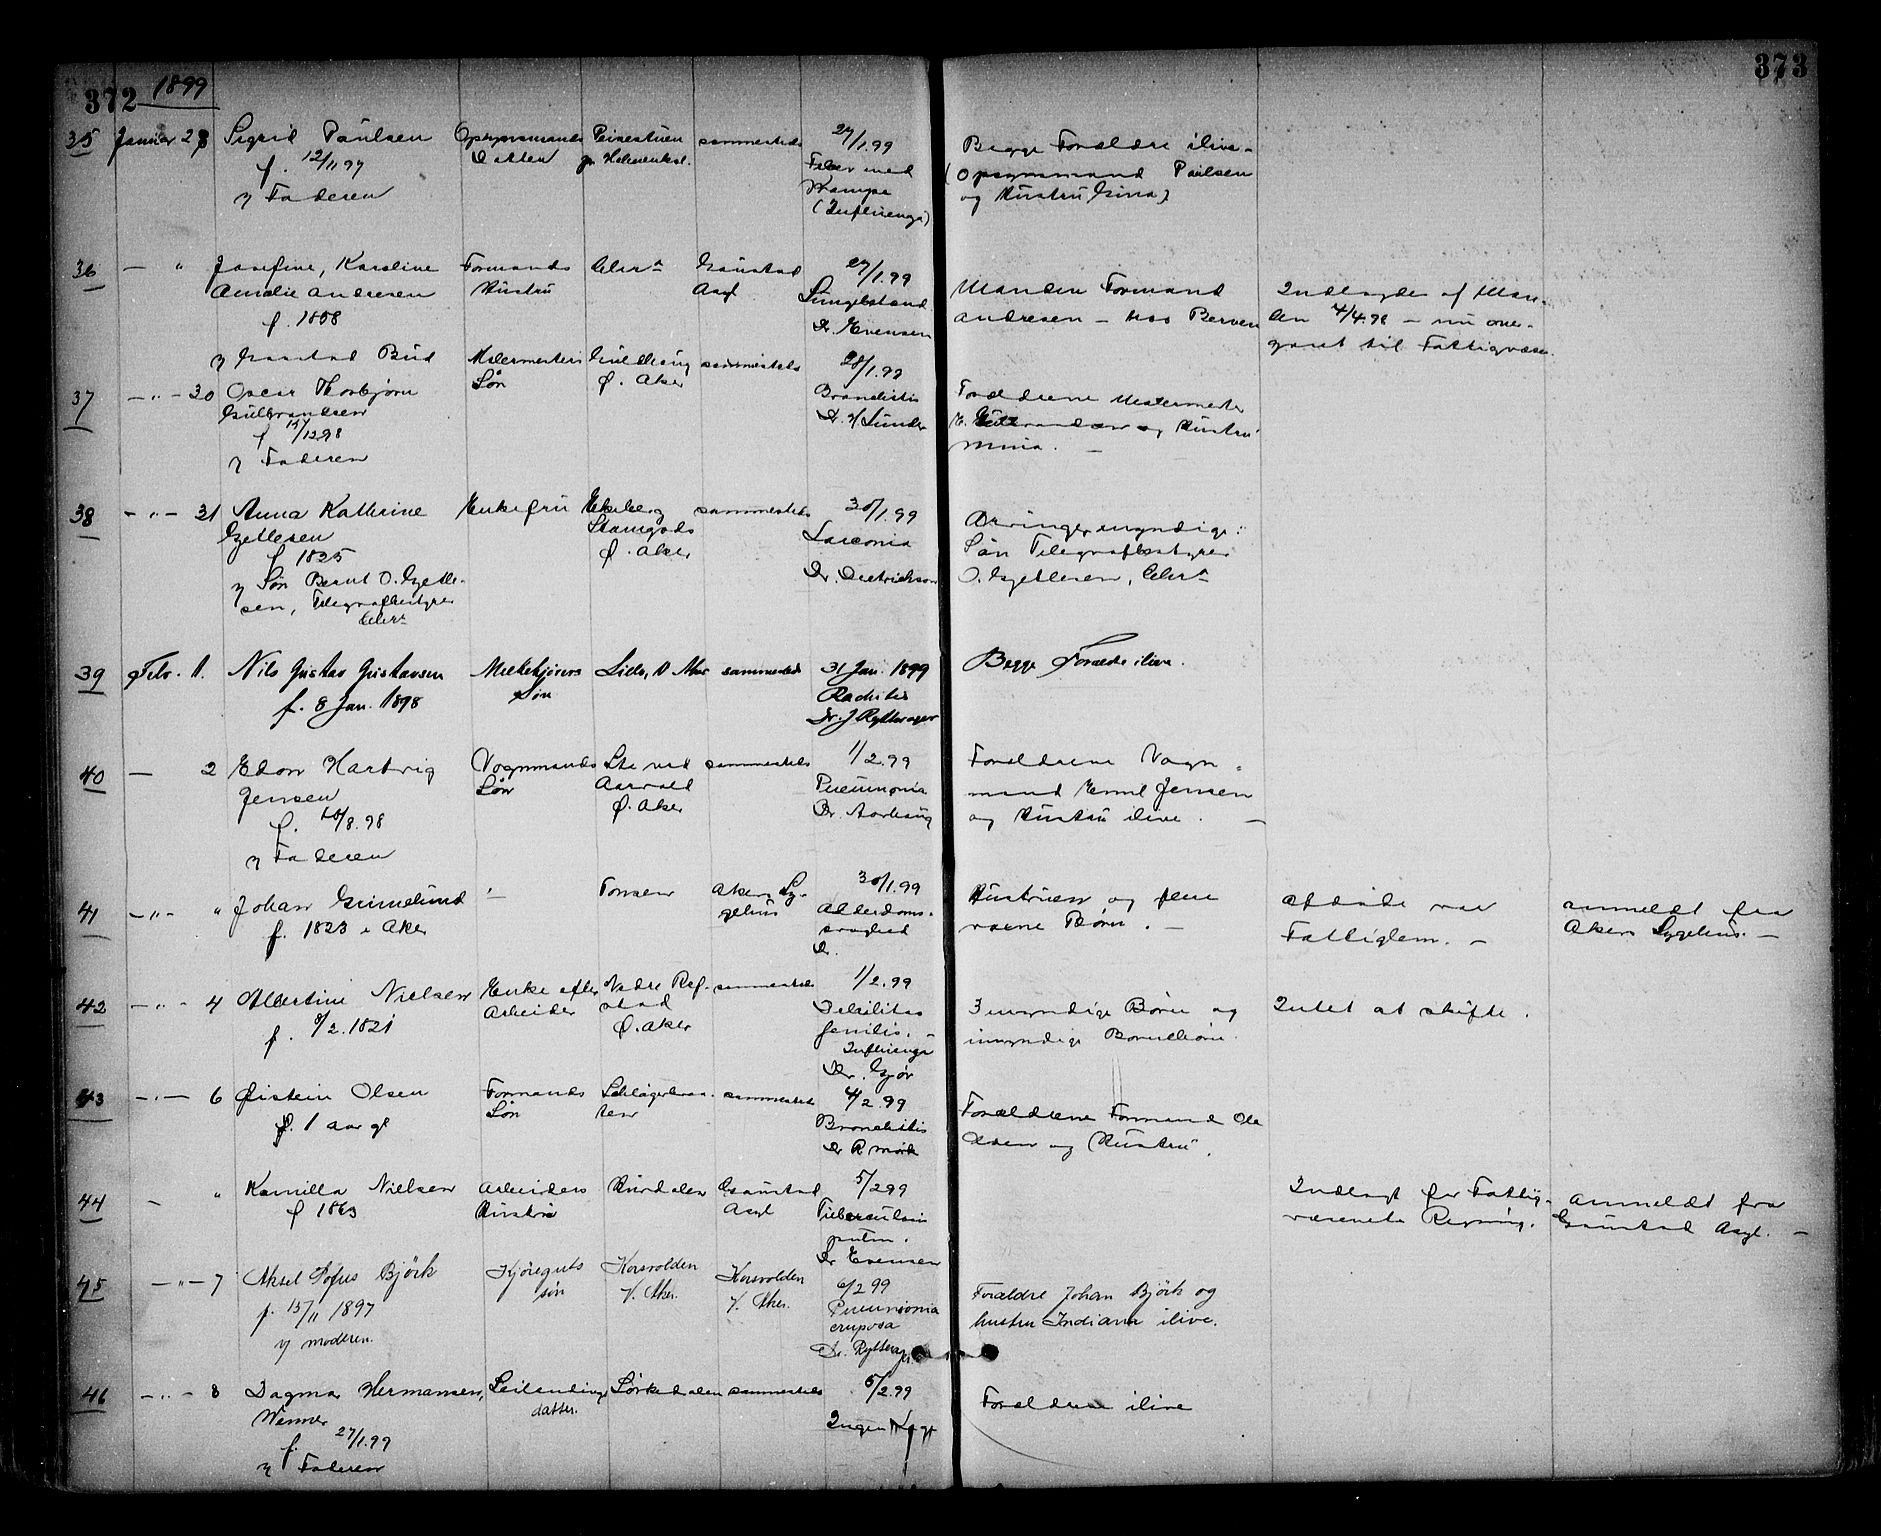 372 1899
373
35 Januar 28 Sigrid Paulsen Opsynsmands Peisestuen sammesteds 27/1.99
f. 12/11 97 Datter Holmenkol.
v Faderen
Feber med
Krampe
(Influenza)
Begge Forældre ilive -
(Opsynsmand Paulsen
og Hustru Gina)
36 — " Josefine, Karoline Formands Chra Gaustad 27/1.99
Amalie Andresen Hustru Asyl
f. 1858 Dr. Evensen
v Gaustad Bud
Manden Formand
Andresen — hos Berven
Indlagdes af Man-
den 4/4.98 — nu over-
gaaet til Fattigvæsen.
37 — " — 30 Oscar Thorbjørn Malermesters sammesteds 28/1.99
Gulbrandsen Søn Ø. Aker Bronchitis
f 15/12 98
v Faderen
Forældrene Malermester
E. Gulbrandsen og Hustru
Mina. —
38 — " — 31 Anna Kathrine Enkefru Ekeberg sammesteds 30/1.99
Gjetlesen Stamgods
f 1825 Ø. Aker
v Søn Bernt O. Gjetle-
sen, Telegrafbestyrer
Chra
Dr. Dietrichson
Arvinger myndige:
Søn Telegrafbestyrer
O. Gjetlesen, Chra
39 Febr. 1. Nils Gustav Gustavsen Melkekjørers sammesteds 31 Jan. 1899
f. 8 Jan. 1898 Søn Rachitis
Dr. J Rytterager
Begge Forældre ilive.
40 — 2 Edon Hartvig Vognmands sammesteds 1/2.99
Jensen Søn Aarvold Pneumonia
f. 18/8.98 Ø. Aker
v Faderen
Forældrene Vogn-
mand Emil Jensen
og Hustru ilive. —
41 — " — " Johan Grimelund — Tonsen Akers Sy- 30/1.99
f. 1823 i Aker gehus Alderdoms-
svaghed
Dr.
Hustruen og flere
voxne Børn. —
Afdøde var
Fattiglem. —
anmeldt fra
Akers Sygehus. —
42 — " — 4 Albertine Nielsen Enke efter Nedre Ref- sammesteds 1/2.99
f. 8/2.1821 Arbeider stad Debilitas
Ø. Aker senilis. —
Influenza
Dr. Gjør
3 myndige Børn og
umyndige Børnebørn.
Intet at skifte.
43 — " — 6 Øistein Olsen Formands sammesteds 4/2.99
f. 1 aar gl Søn Bronchitis
Dr R Mørk
Forældrene Formand Ole
Olsen og Hustru.
44 — " Kamilla Nielsen Arbeiders Hurdalen Gaustad 5/2 99
f 1863 Hustru Asyl Tuberculosis
pulm.
Dr Evensen
Indlagt for Fattig-
væsenets Regning.
Anmeldt fra
Gaustad Asyl. —
45 — " — 7 Aksel Sofus Björk Kjøreguts Korsvolden Korsvolden 6/2 99
f. 15/11 1897 søn V. Aker. V. Aker. Pneumonia
v moderen. cruposa
Dr. Rytterager.
Forældre Johan Björk og
hustru Indiana ilive.
46 — " — 8 Dagmar Hermansen, Leilendings Sørkedalen sammesteds 5/2.99
Wenner datter.
f. 27/1.99
v Faderen
Ingen Læge
Forældrene ilive